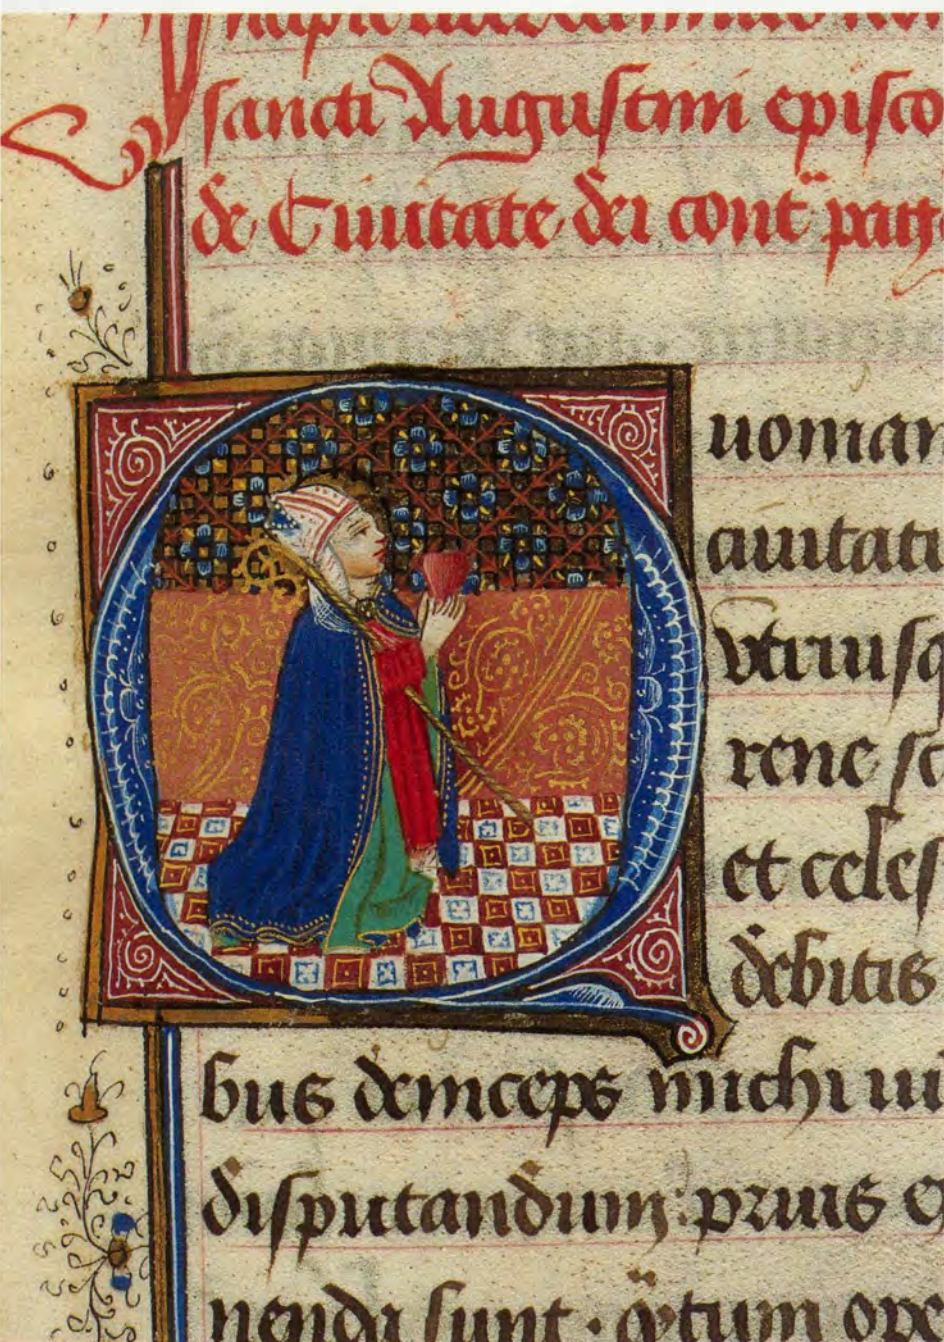 sancti Augustini episco
de Ciuitate dei cont̄ pag
uoniam
ciuitatu
vtriusq
rene sc
et celes
debitis
bus deinceps michi ui
disputandum: prius e
nendi sunt.